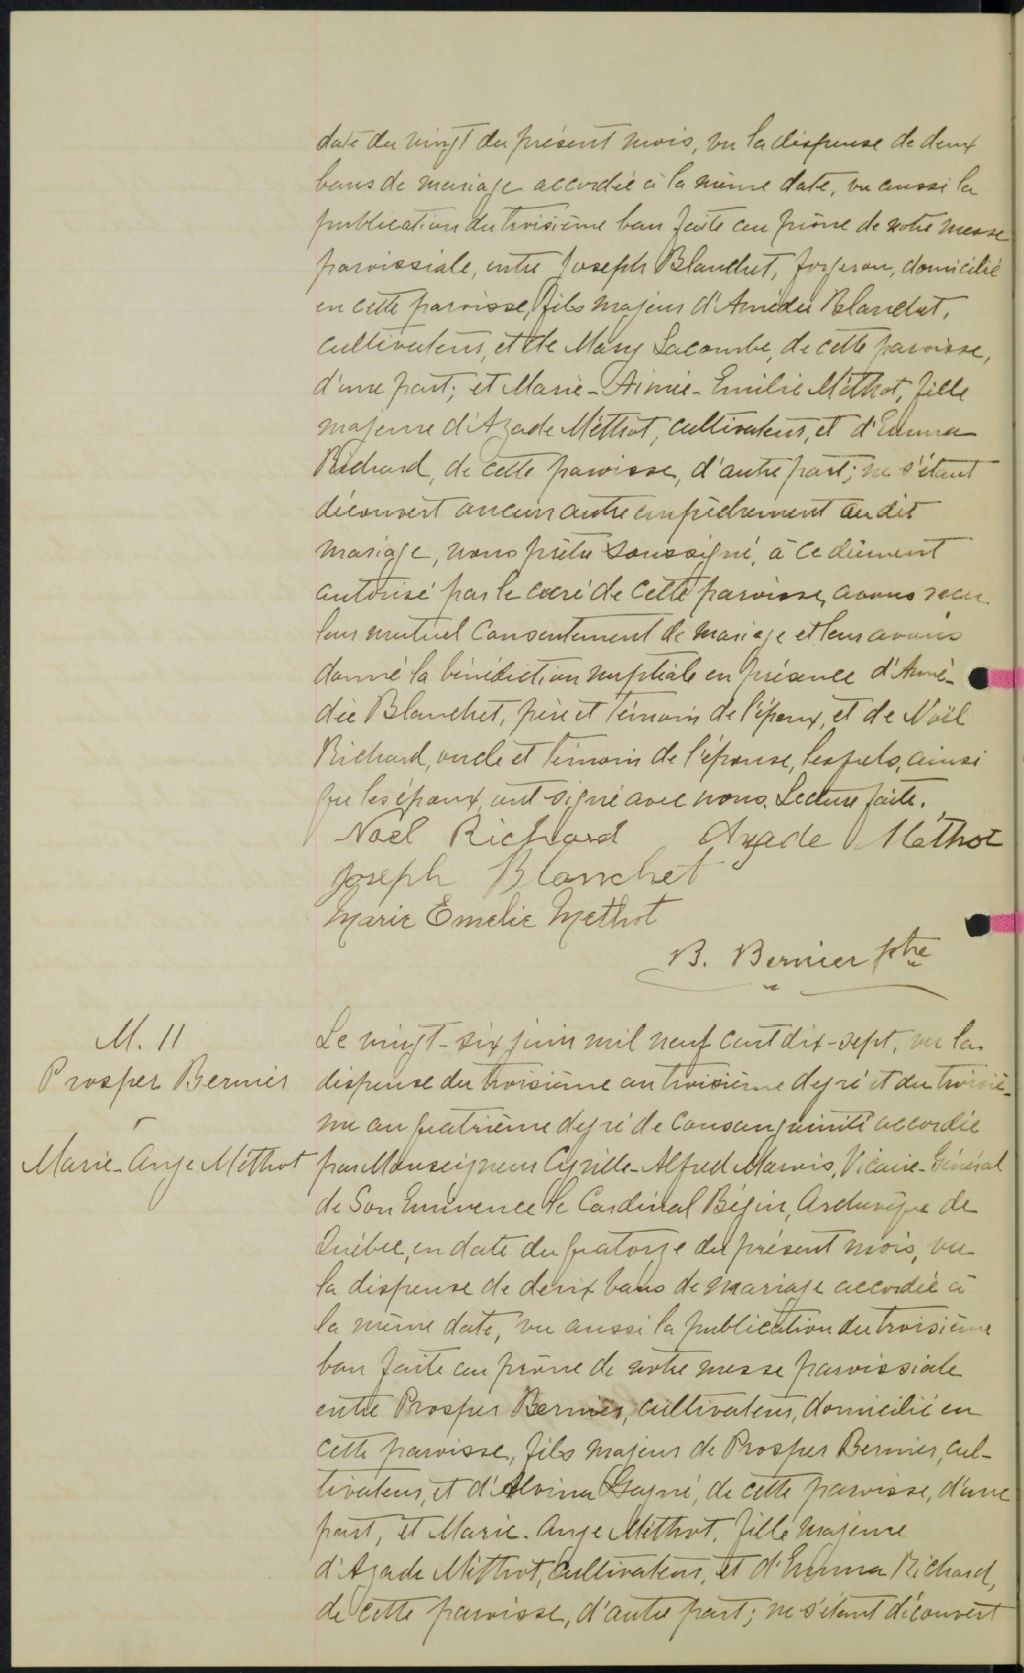 date du vingt du présent mois, vu la dispense de deux
bans de mariage accordée à la même date, vu aussi la
publication du troisième ban faite au prône de notre messe
paroissiale, entre Joseph Blanchet, forgeron, domicilié
en cette paroisse, fils majeur d'Amédée Blanchet,
cultivateur, et de Mary Lacombe, de cette paroisse,
d'une part; et Marie-Aimée-Emilie Méthot, fille
majeure d'Azade Méthot, cultivateur, et d'Emma
Richard, de cette paroisse, d'autre part; ne s'étant
découvert aucun autre empêchement au dit
mariage, nous prêtre soussigné, à ce dûment
autorisé par le curé de cette paroisse, avons reçu
leur mutuel consentement de mariage et leur avons
donné la bénédiction nuptiale en présence d'Amé-
dée Blanchet, père et témoin de l'époux, et de Noël
Richard, oncle et témoin de l'épouse, lesquels, ainsi
que les époux, ont signé avec nous. Lecture faite.
Noël Richard Azade Méthot
Joseph Blanchet
Marie Emelie Methot
B. Bernier ptre
M. 11
Prosper Bernier
-
Marie-Ange Méthot
Le vingt-six juin mil neuf cent dix-sept, vu la
dispense du troisième au troisième degré et du troisiè-
me au quatrième degré de consanguinité accordée
par Monseigneur Cyrille-Alfred Marois, Vicaire-Général
de Son Eminence le Cardinal Bégin, Archevêque de
Québec, en date du quatorze du présent mois, vu
la dispense de deux bans de mariage accordée à
la même date, vu aussi la publication du troisième
ban faite au prône de notre messe paroissiale
entre Prosper Bernier, cultivateur, domicilié en
cette paroisse, fils majeur de Prosper Bernier, cul-
tivateur, et d'Alvina Gagné, de cette paroisse, d'une
part, et Marie-Ange Méthot, fille majeure
d'Azade Méthot, cultivateur, et d'Emma Richard,
de cette paroisse, d'autre part; ne s'étant découvert